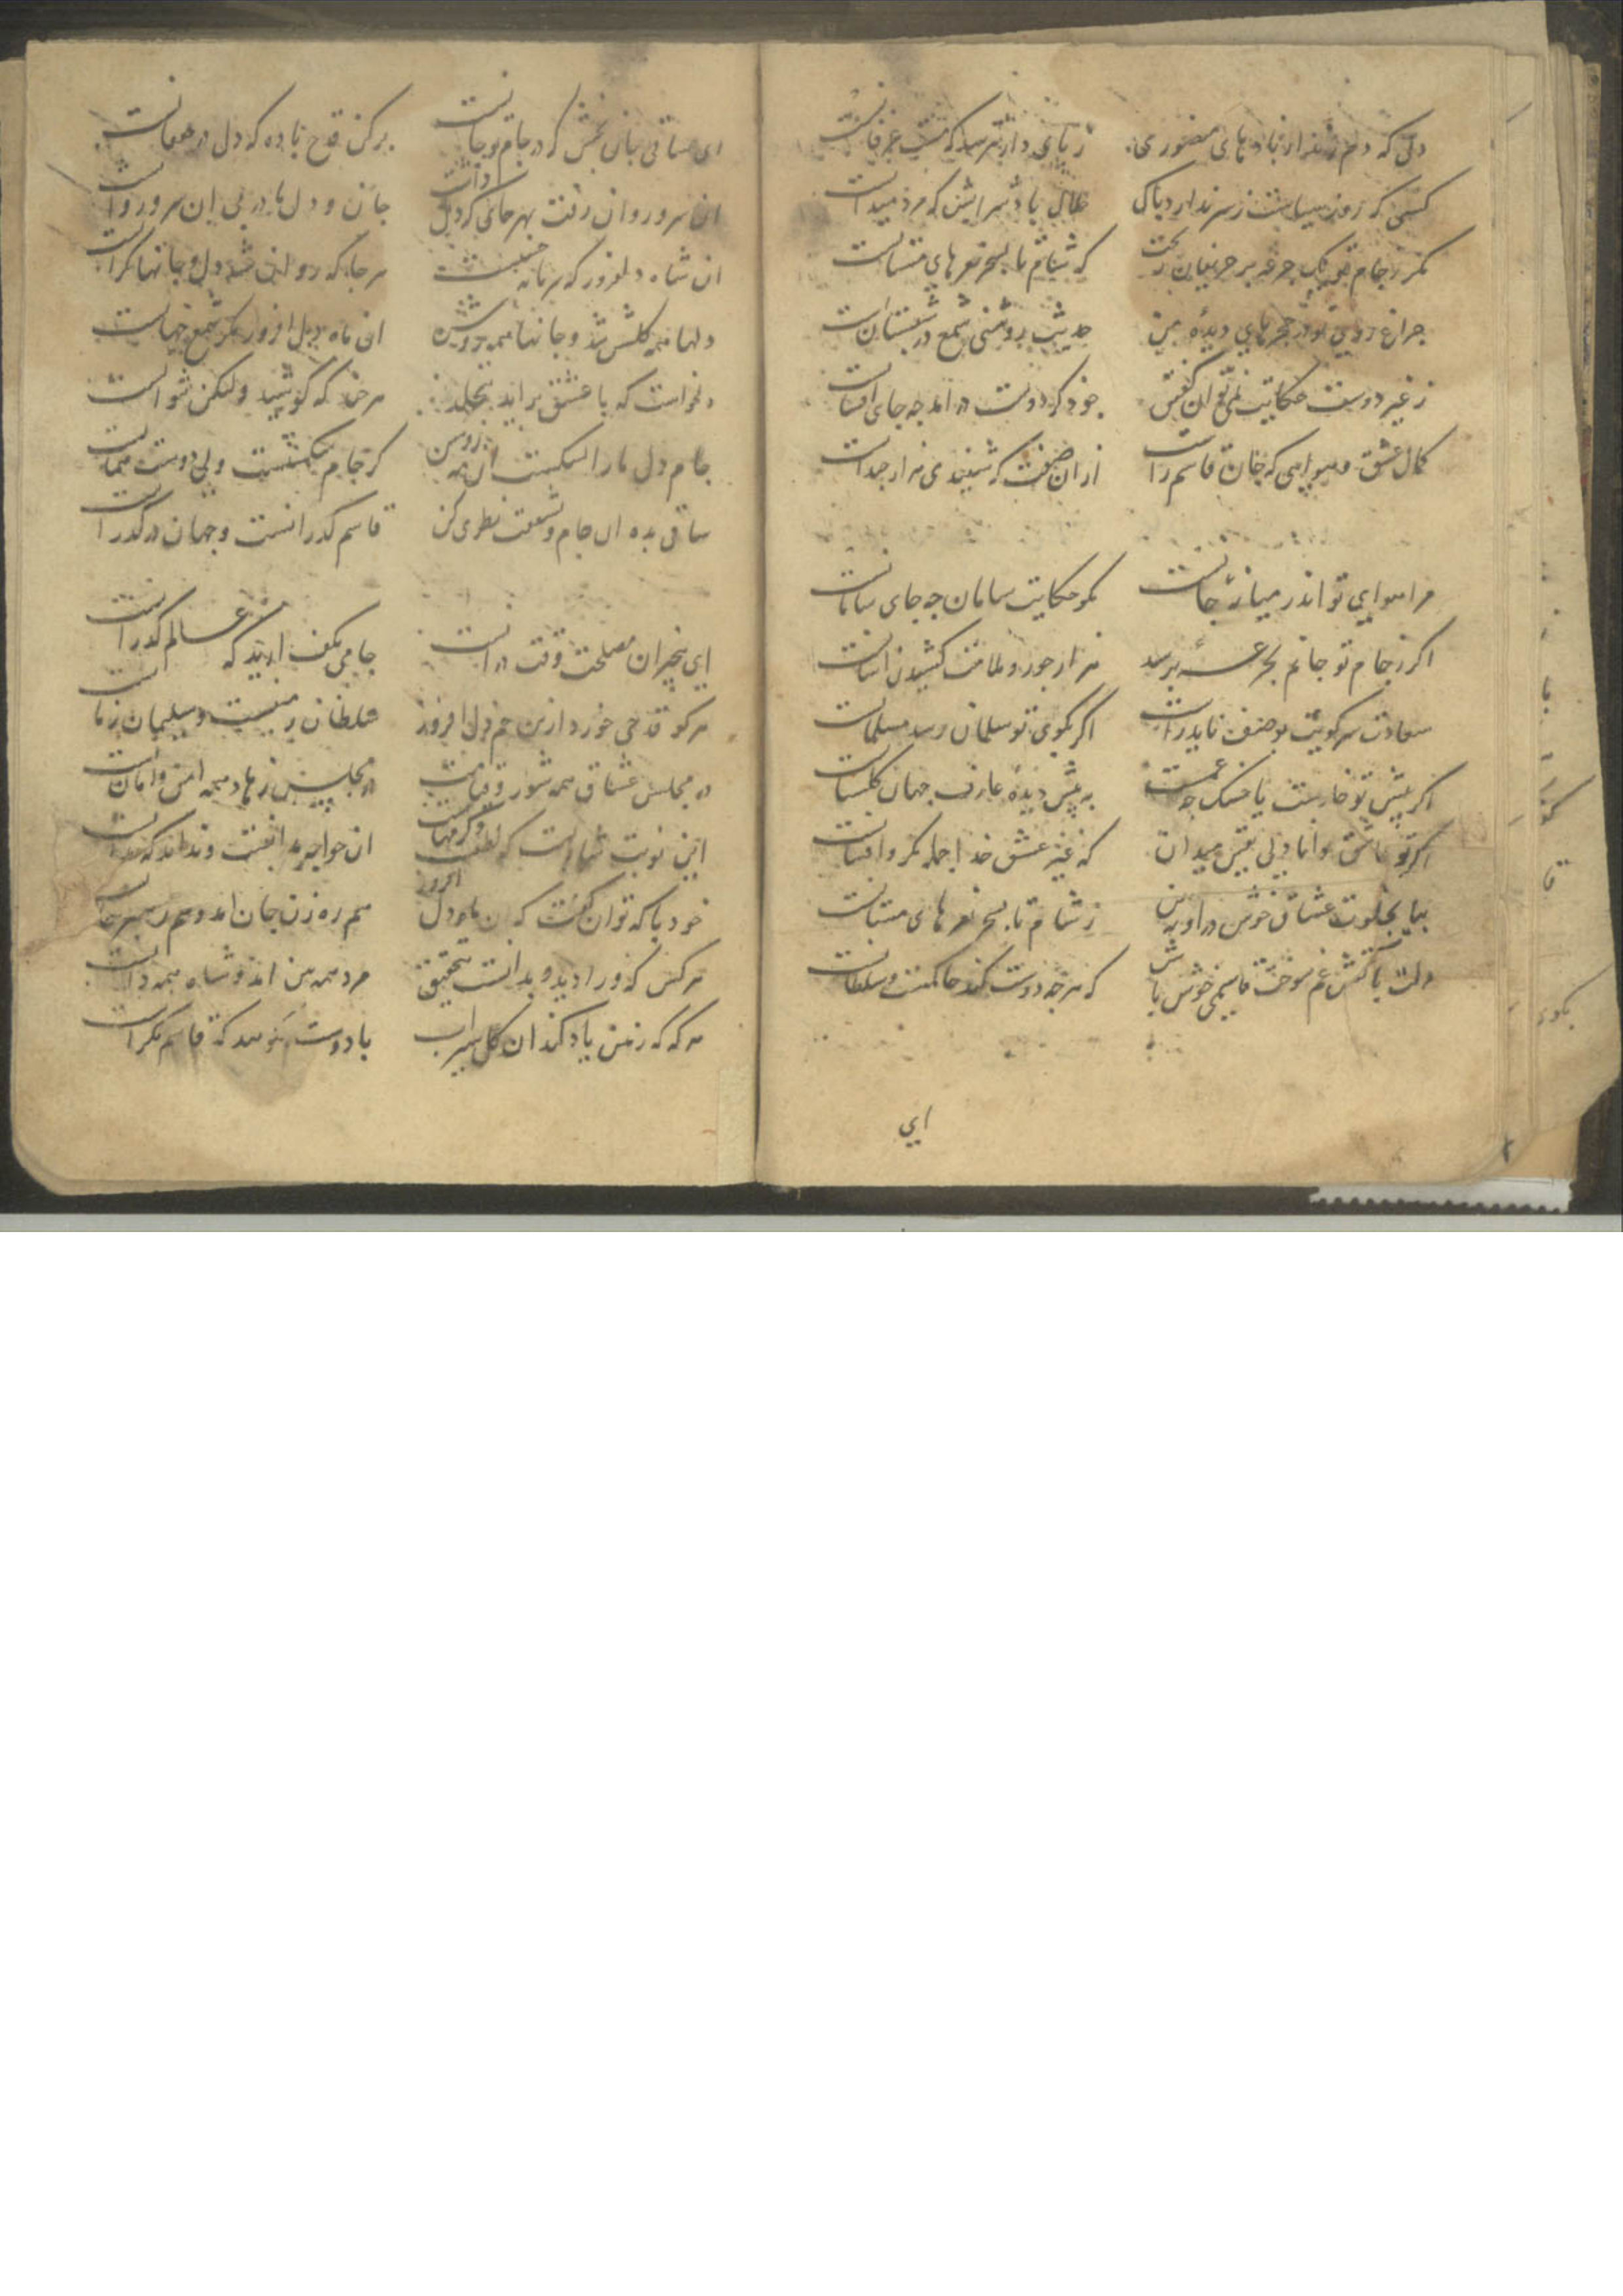 دلی که دم زند از بادهای منصوری
ز پای دار نترسد که مست عرفانست
کسی که روز سیاست ز سر ندارد باک
حلال باد سرایش که مرد میدانست
مکر ز جام تو یک جرعه بر حریفان ریخت
که شام تا بسحر نعرهای مستانست
جراغ روی تو در حجرهای دیده من
حدیث روشنی شمع در شبستانست
ز غیر دوست حکایت نمی توان کفتن
جو ذکر دوست در آمد جه جای افسانست
کمال عشق و هوایی که جان قاسم راست
از آن صفت که شنیدی هزار جندانست
مرا هوای تو اندر میانه جانست
مکو حکایت سامان جه جای سامانست
اکر ز جام تو جانم بجرعه برسد
هزار جور و ملامت کشیدن آسانست
سعادت سر کویت بوصف ناید راست
اکر بکوی تو سلمان رسد مسلمانست
اکر به پیش تو خارست یا خسک جه غمست
به پیش دیده عارف جهان کلستانست
اکر تو عاشق و دانا دلی یقین میدان
که غیر عشق خدا جمله مکر و افسانست
بیا بخلوت عشاق خوش درا و ببین
ز شام تا بسحر نعرهای مستانست
دلت بآتش غم سوخت قاسمی خوش باش
که هرجه دوست کند حاکمست و سلطانست
ای
ای ساقی جان بخش که در جام تو جانست
پر کن قدح باده که دل در خفقانست
آن سرو روان رفت بهر جای که دل داشت
جان و دل ما در پی آن سرو روانست
آن شاه دلفروز که برما نه
هرجا که روان شد دل و جانها نکرانست
دلها همه کلشن شد و جانها همه روشن
آن ماه دل افروز مکر شمع جهانست
دلخواست که با عشق برآید بتجلد
هرجند که کوشید ولیکن نتوانست
جام دل ما را شکست آن بت
کر جام شکستست ولی دوست همانست
ساقی بده آن جام و بشفقت نظری کن
قاسم کذرانست و جهان در کذرانست
ای بیخبران مصلحت وقت در آنست
جامی بکف آرید که عالم کذرانست
هر کو قدحی خورد ازین خم دل افروز
سلطان زمینست و سلیمان زمانست
در مجلس عشاق همه شور و قیامت
در مجلس زهاد همه امن و امانست
این نوبت شماست که لطف و کرمهاست
آن خواجه مرا کفت و نداند که جه دانست
خود با که توان کفت که آن ماه دل افروز
هم ره زن جان آمد و هم رهبر جانست
هر کس که ورا دید و بدانست بتحقیق
مرد همه من آمد و شاه همه دانست
هر که که ز من یاد کند آن کل سیراب
با دوست بکویید که قاسم نکرانست